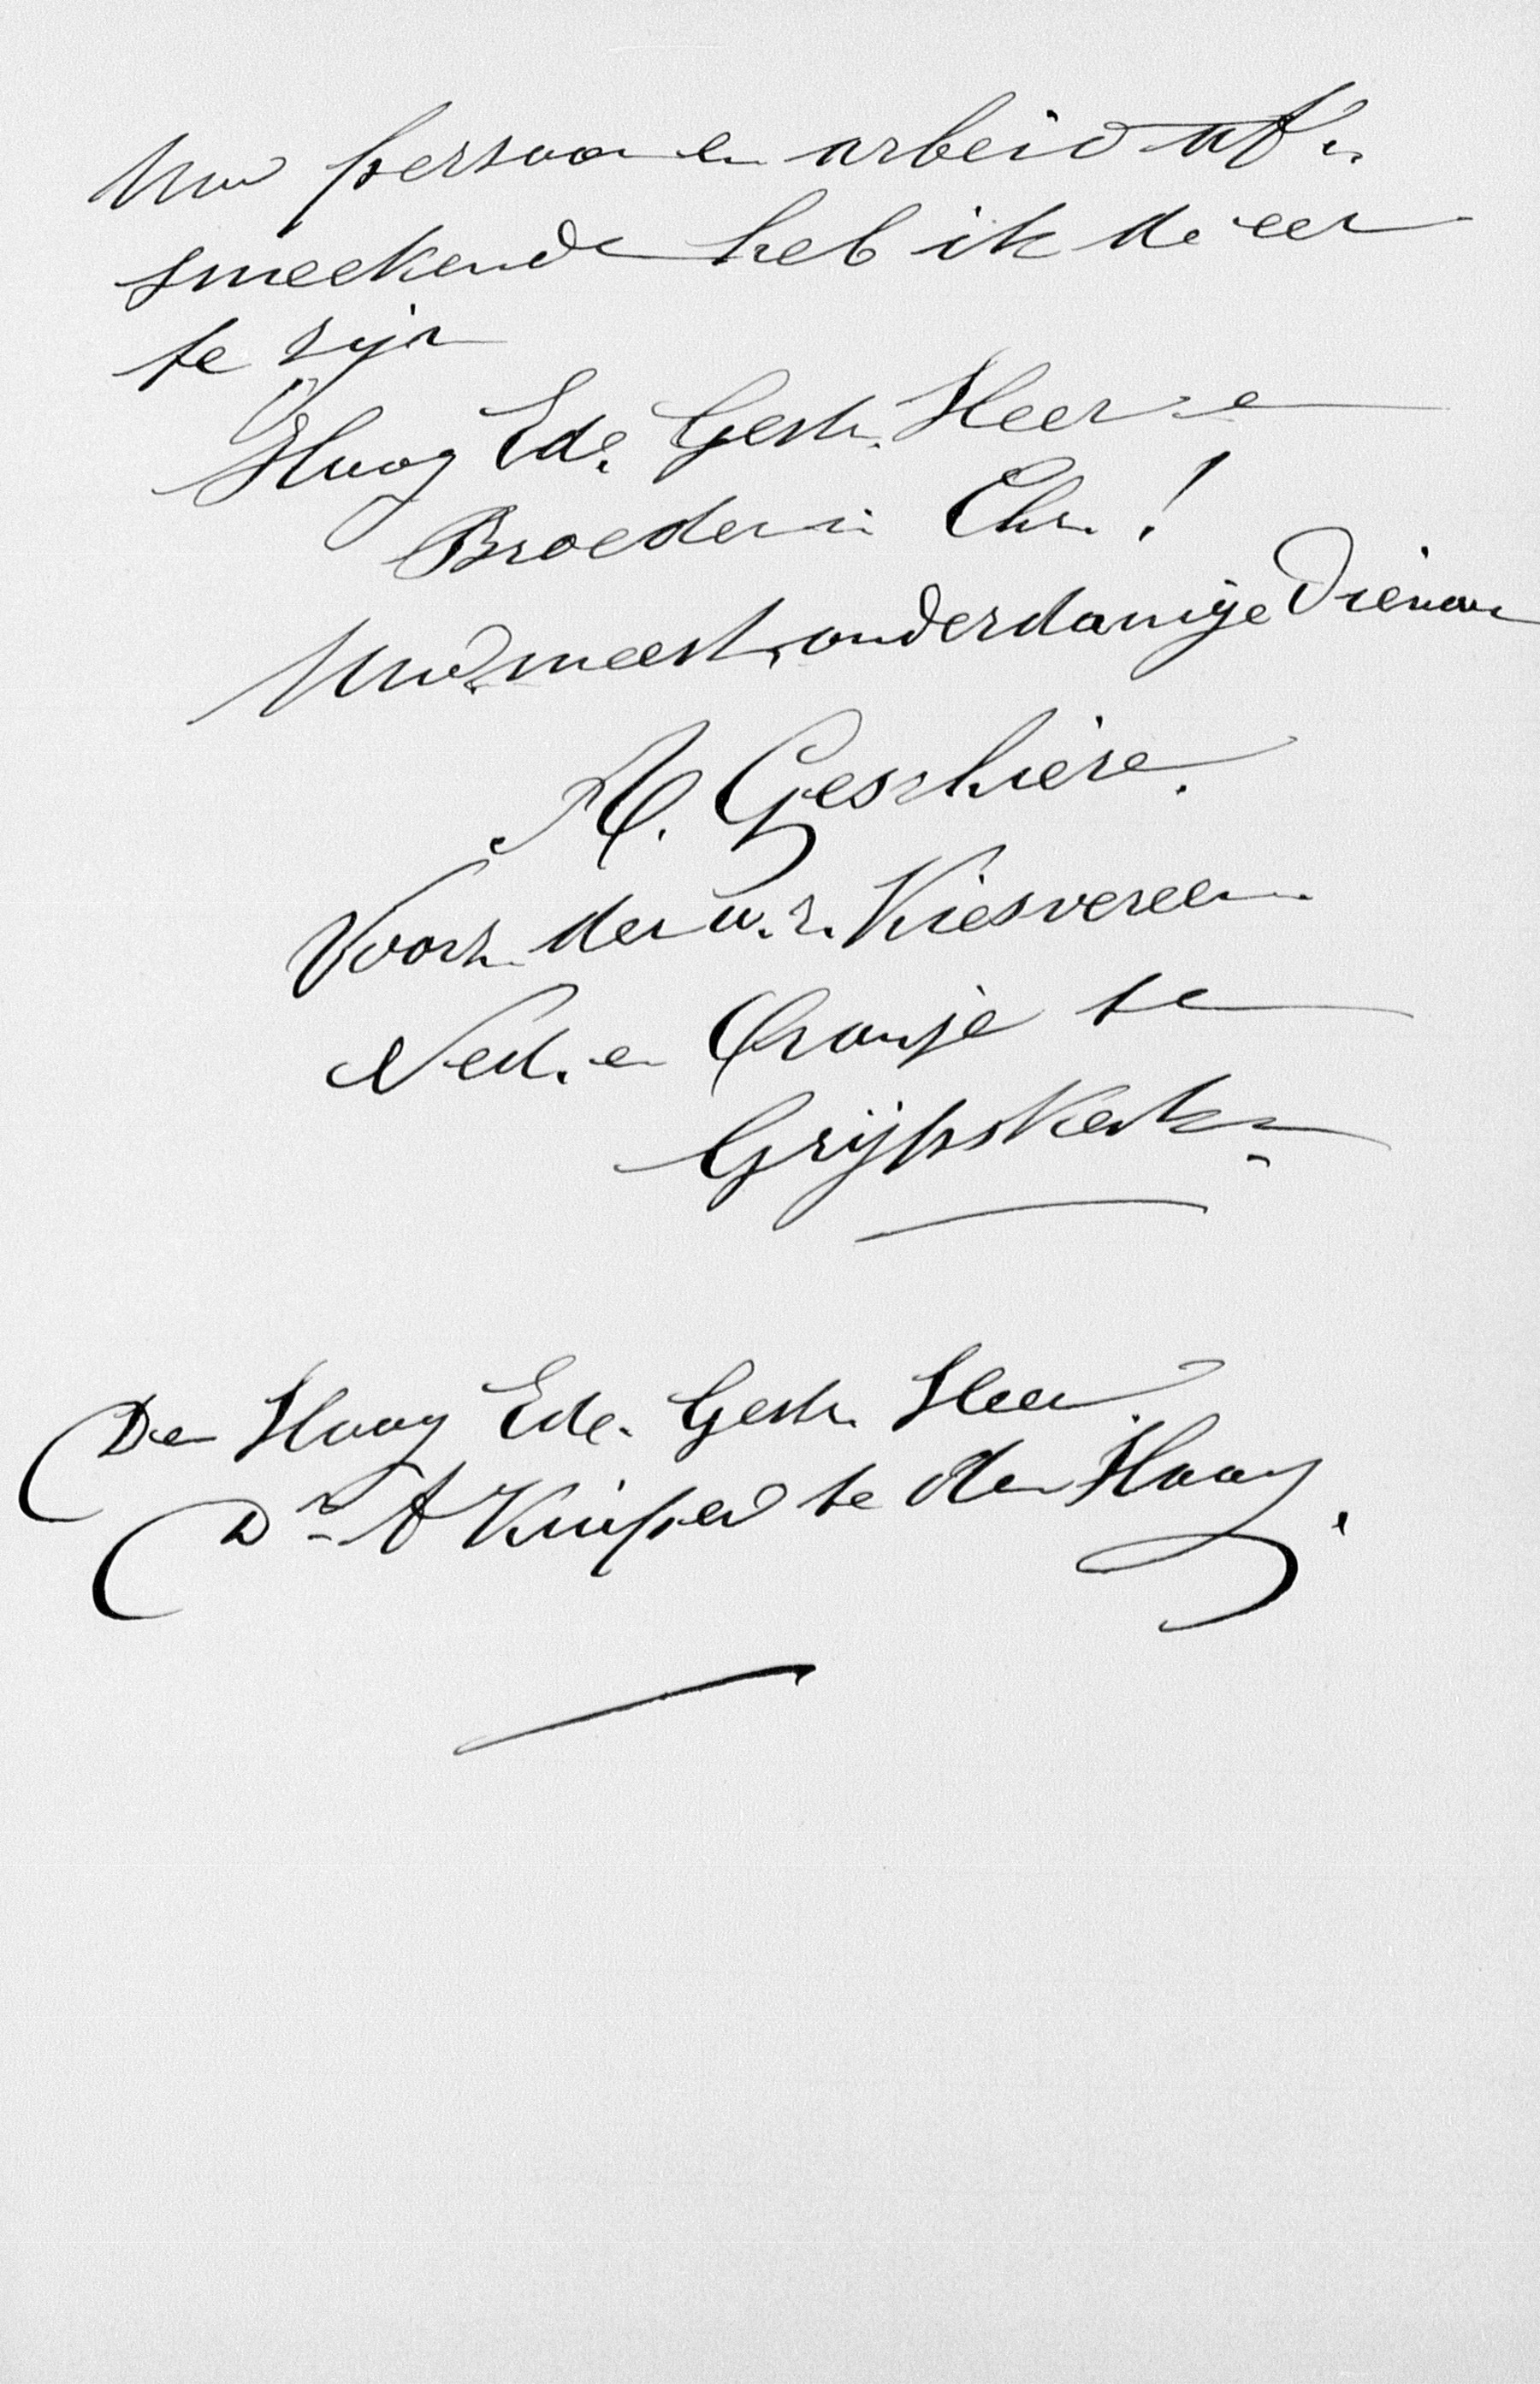 Uw persoon en arbeid af-
smeekende heb ik de eer
te zijn
Hoog Ede. Gestr. Heer en
Broeder in Chr.!
Uw meest onderdanige Dienaar
A. Geschiere.
Voorz. der a.r. Kiesvereen.
Ned. en Oranje te
Grijpskerke
Den Hoog Ede. Gestr. Heer
Dr. A Kuiper te den Haag.